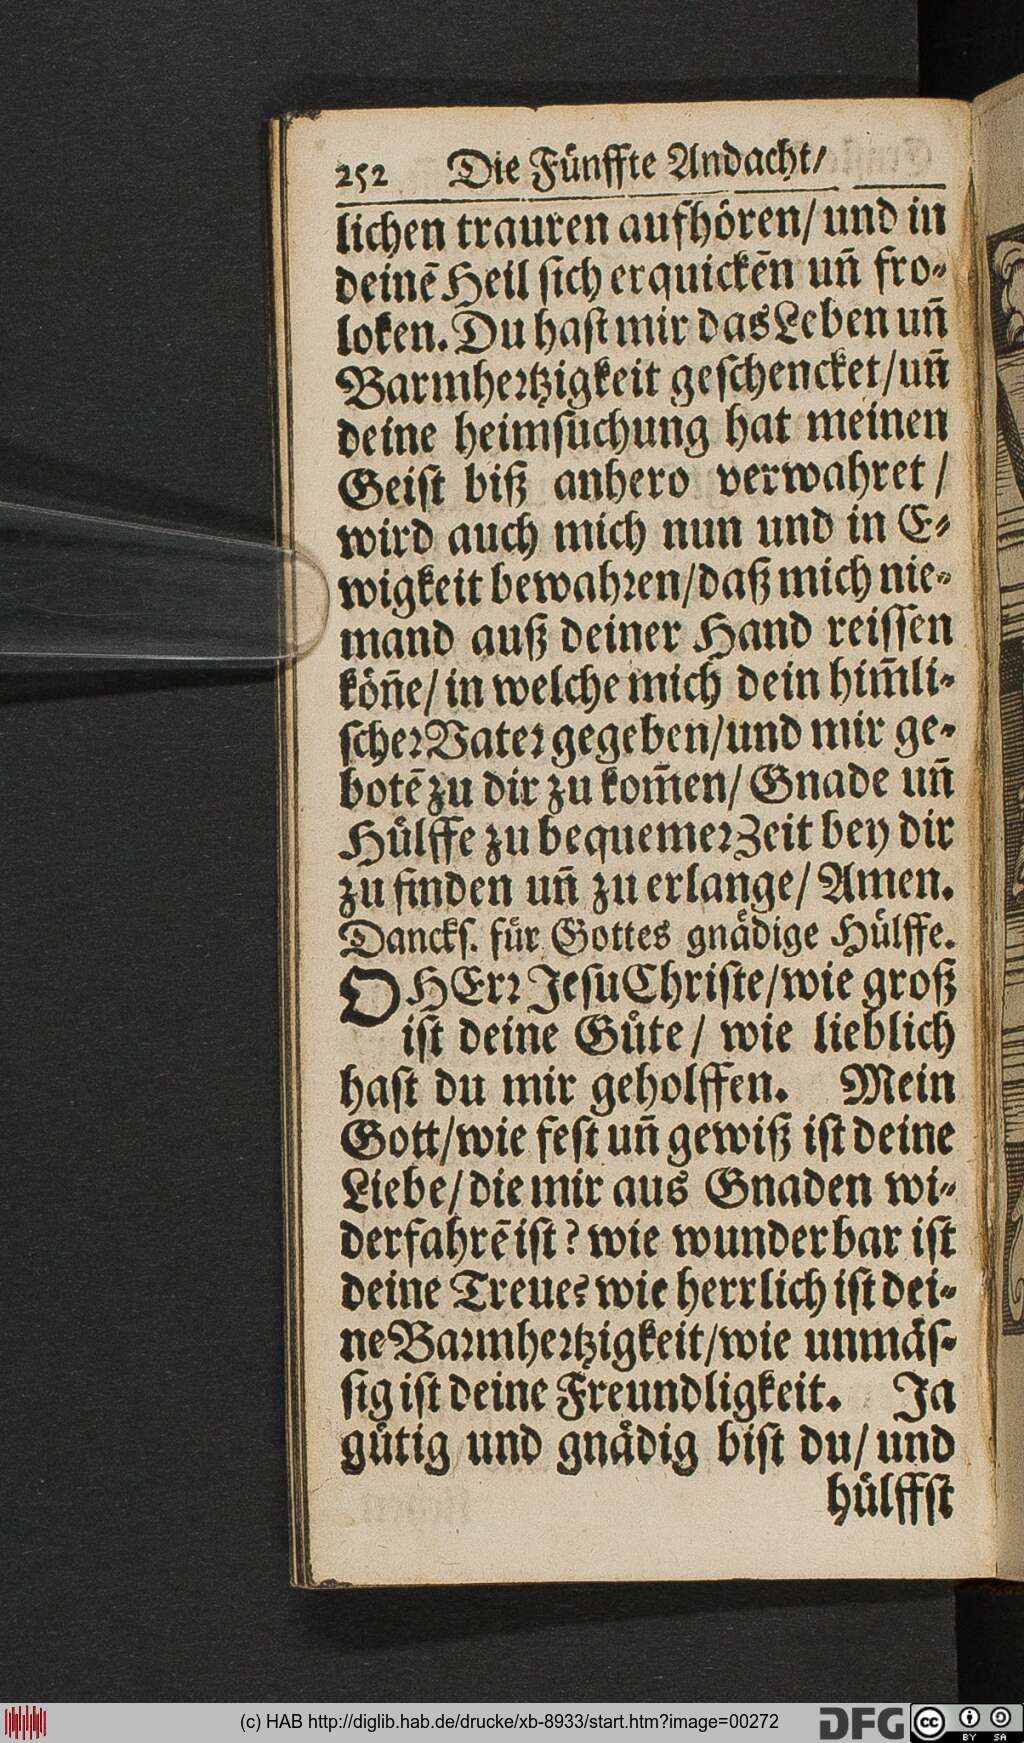 252 Die Fünffte Andacht/
lichen trauren aufhören/und in
deinē Heil sich erquickēn uñ fro-
loken. Du hast mir das Leben uñ
Barmhertzigkeit geschencket/uñ
deine heimsuchung hat meinen
Geist biß anhero verwahret/
wird auch mich nun und in E-
wigkeit bewahren/daß mich nie-
mand auß deiner Hand reissen
köñe/in welche mich dein him̄li-
scher Vater gegeben/und mir ge-
botē zu dir zu kom̄en/Gnade uñ
Hülffe zu bequemer Zeit bey dir
zu finden uñ zu erlange/Amen.
Dancks. für Gottes gnädige Hülffe.
O HErr Jesu Christe/wie groß
ist deine Güte/ wie lieblich
hast du mir geholffen. Mein
Gott/wie fest uñ gewiß ist deine
Liebe/die mir aus Gnaden wi-
derfahrē ist? wie wunderbar ist
deine Treue? wie herrlich ist dei-
ne Barmhertzigkeit/wie unmäs-
sig ist deine Freundligkeit. Ja
gütig und gnädig bist du/und
hülffst
(c) HAB http://diglib.hab.de/drucke/xb-8933/start.htm?image=00272
DFG
cc BY SA